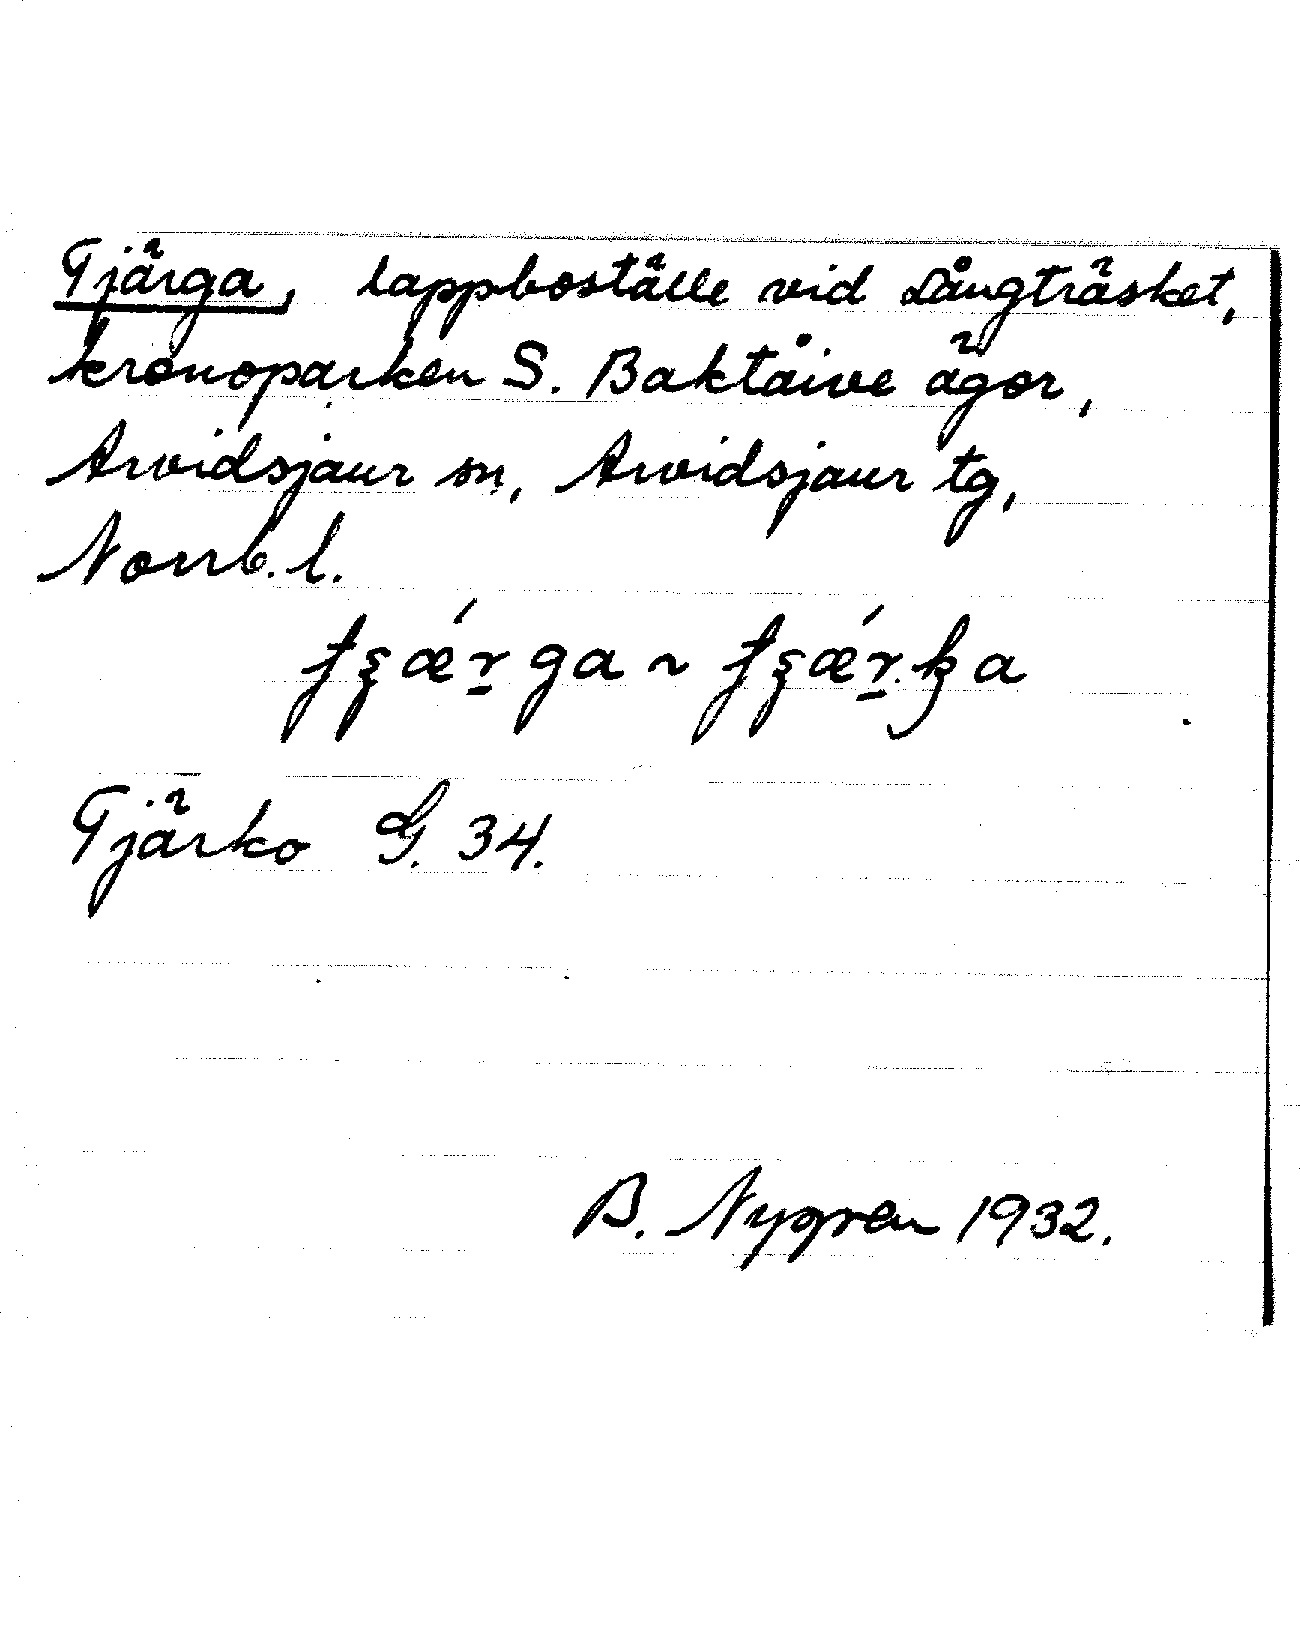 Tjärga, lappboställe vid Långträsket,
kronoparken S. Baktåive ägor,
Arvidsjaur sn, Arvidsjaur tg,
Norrb. l.
ga ~
Tjärko G. 34.
B. Nygren 1932.